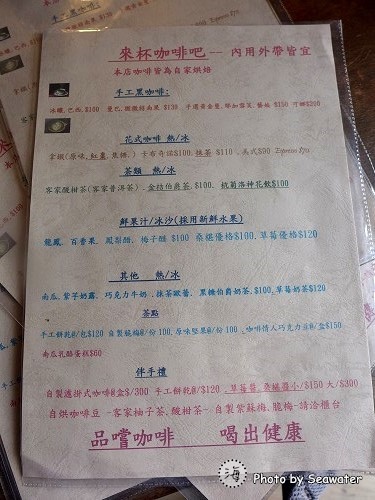 來杯咖啡吧—內用外帶皆宜
本店咖啡皆為自家烘焙
手工黑咖啡:
冰釀,巴西,$100 曼巴,
花式咖啡 熱/冰
拿鐵(原味,紅薑,焦糖,)卡布奇諾$100,抹茶 $110,美式$90 Espresso $70
茶類 熱/冰
客家酸柑茶(客家普洱茶),金桔伯爵茶,$100,杭菊洛神花飲$100
鮮果汁/冰沙(採用新鮮水果)
龍鳳, 百香果, 鳳梨醋, 梅子醋 $100 桑椹優格$100,草莓優格$120
其他 熱/冰
南瓜,紫子奶露,巧克力牛奶,抹茶歐蕾,黑糖伯爵奶茶,$100,草莓奶茶$120
茶點
手工餅乾@/包$120 自製脆梅@/份100,原味堅果@/份100,咖啡情人巧克力豆@/盒$150
南瓜乳酪蛋糕$60
伴手禮
自製濾掛式咖啡@盒$/300 手工餅乾@/$120,草莓醬,桑椹醬小/$150大/$300
自烘咖啡豆-客家柚子茶,酸柑茶-自製紫蘇梅,脆梅-請洽櫃台
品嚐咖啡 喝出健康
海 Photo by Seawater